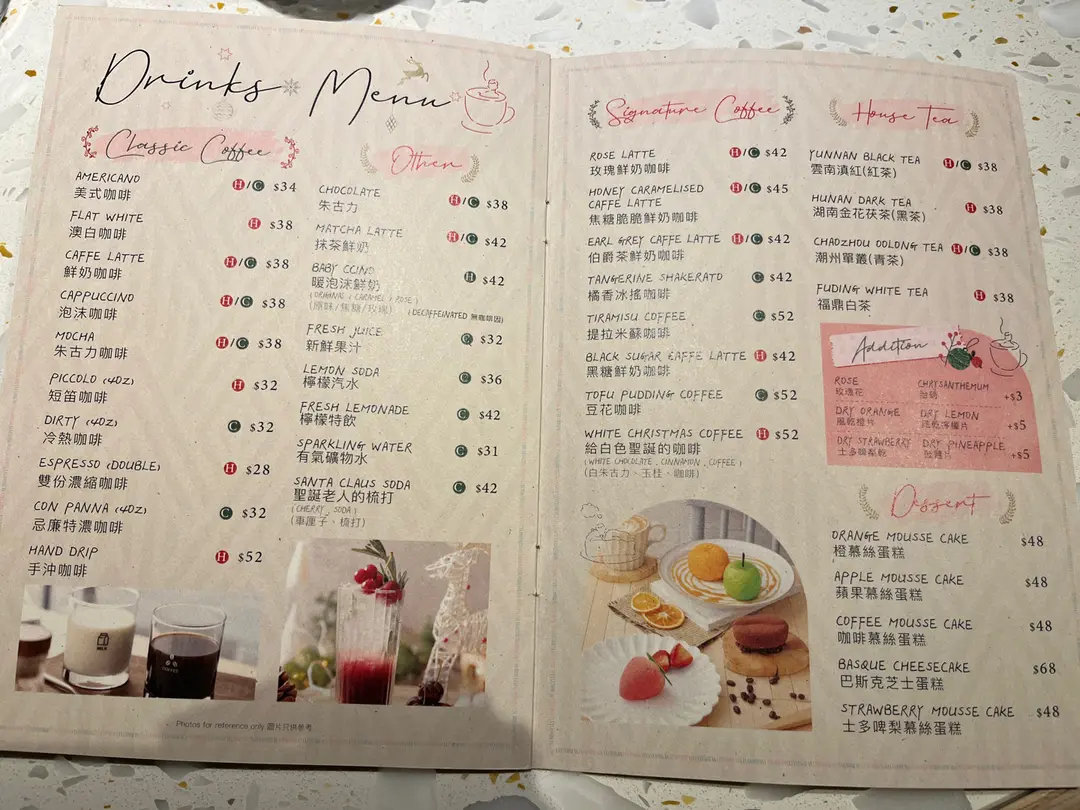 Drinks Menu
Classic Coffee
AMERICANO H/C $34
美式咖啡
FLAT WHITE H $38
澳白咖啡
CAFFE LATTE H/C $38
鮮奶咖啡
CAPPUCCINO H/C $38
泡沫咖啡
MOCHA H/C $38
朱古力咖啡
PICCOLO (4OZ) H $32
短笛咖啡
DIRTY (4OZ) C $32
冷熱咖啡
ESPRESSO (DOUBLE) H $28
雙份濃縮咖啡
CON PANNA (4OZ) C $32
忌廉特濃咖啡
HAND DRIP H $52
手沖咖啡
Other
CHOCOLATE H/C $38
朱古力
MATCHA LATTE H/C $42
抹茶鮮奶
BABY CCINO H $42
暖泡沫鮮奶
(ORIGINAL / CARAMEL / ROSE)
(原味/焦糖/玫瑰) (DECAFFEINATED 無咖啡因)
FRESH JUICE C $32
新鮮果汁
LEMON SODA C $36
檸檬汽水
FRESH LEMONADE C $42
檸檬特飲
SPARKLING WATER C $31
有氣礦物水
SANTA CLAUS SODA C $42
聖誕老人的梳打
(CHERRY, SODA)
(車厘子、梳打)
MILK
Photos for reference only 圖片只供參考
Signature Coffee
ROSE LATTE H/C $42
玫瑰鮮奶咖啡
HONEY CARAMELISED CAFFE LATTE H/C $45
焦糖脆脆鮮奶咖啡
EARL GREY CAFFE LATTE H/C $42
伯爵茶鮮奶咖啡
TANGERINE SHAKERATO C $42
橘香冰搖咖啡
TIRAMISU COFFEE C $52
提拉米蘇咖啡
BLACK SUGAR CAFFE LATTE H $42
黑糖鮮奶咖啡
TOFU PUDDING COFFEE C $52
豆花咖啡
WHITE CHRISTMAS COFFEE H $52
給白色聖誕的咖啡
(WHITE CHOCOLATE, CINNAMON, COFFEE)
(白朱古力、玉桂、咖啡)
House Tea
YUNNAN BLACK TEA H/C $38
雲南滇紅(紅茶)
HUNAN DARK TEA H $38
湖南金花茯茶(黑茶)
CHAOZHOU OOLONG TEA H/C $38
潮州單叢(青茶)
FUDING WHITE TEA H $38
福鼎白茶
Addition
ROSE CHRYSANTHEMUM
玫瑰花 +$3
DRY ORANGE DRY LEMON
風乾橙片 +$5
DRY STRAWBERRY DRY PINEAPPLE
士多啤梨乾 +$5
Dessert
ORANGE MOUSSE CAKE $48
橙慕絲蛋糕
APPLE MOUSSE CAKE $48
蘋果慕絲蛋糕
COFFEE MOUSSE CAKE $48
咖啡慕絲蛋糕
BASQUE CHEESECAKE $68
巴斯克芝士蛋糕
STRAWBERRY MOUSSE CAKE $48
士多啤梨慕絲蛋糕